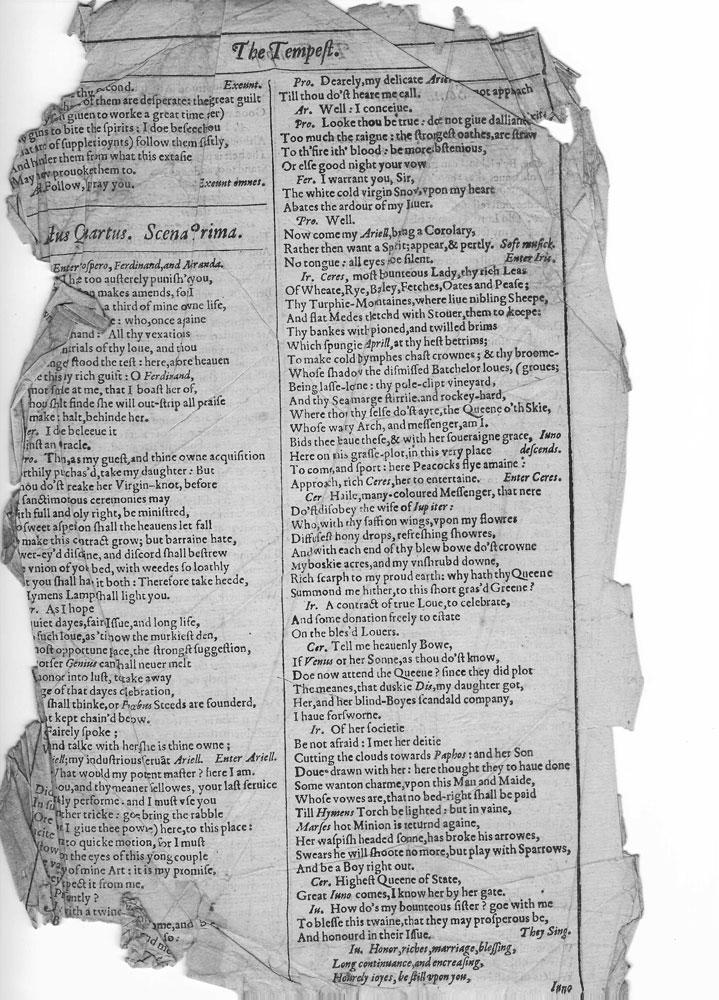 The Tempeſt.
thy ſecond. Exeunt.
of them are deſperate: their great guilt
giuen to worke a great time
gins to bite the ſpirits: I doe beſeech you
of ſuppler ioynts) follow them ſwiftly,
And hinder them from what this extaſie
May now prouoke them to.
Follow, I pray you. Exeunt omnes.
tus Quartus. Scena Prima.
Enter Proſpero, Ferdinand, and Miranda.
too auſterely puniſh'd you,
makes amends, for I
a third of mine owne life,
who, once againe
hand: All thy vexations
trials of thy loue, and thou
ſtood the teſt: here, afore heauen
this my rich guift: O Ferdinand,
not ſmile at me, that I boaſt her of,
ſhalt finde ſhe will out-ſtrip all praiſe
make it halt, behinde her.
er. I doe beleeue it
inſt an Oracle.
ro. Then, as my gueſt, and thine owne acquiſition
rthily purchas'd, take my daughter: But
hou do'ſt breake her Virgin-knot, before
ſanctimonious ceremonies may
ith full and holy right, be miniſtred,
ſweet aſperſion ſhall the heauens let fall
make this contract grow; but barraine hate,
wer-ey'd diſdaine, and diſcord ſhall beſtrew
vnion of your bed, with weedes ſo loathly
t you ſhall hate it both: Therefore take heede,
Hymens Lamps ſhall light you.
r. As I hope
uiet dayes, faire Iſſue, and long life,
ſuch loue, as 'tis now the murkieſt den,
moſt opportune place, the ſtrongſt ſuggeſtion,
worſer Genius can, ſhall neuer melt
honor into luſt, to take away
ge of that dayes celebration,
ſhall thinke, or Phœbus Steeds are founderd,
kept chain'd below.
Fairely ſpoke;
and talke with her, ſhe is thine owne;
iell; my induſtrious ſeruãt Ariell. Enter Ariell.
What would my potent maſter? here I am.
ou, and thy meaner fellowes, your laſt ſeruice
ly performe: and I muſt vſe you
her tricke: goe bring the rabble
I giue thee powre) here, to this place:
to quicke motion, for I muſt
the eyes of this yong couple
of mine Art: it is my promiſe,
xpect it from me.
ntly?
with a twincke.
ome, and
ſo:
Pro. Dearely, my delicate Ariell: not approach
Till thou do'ſt heare me call.
Ar. Well: I conceiue.
Pro. Looke thou be true: doe not giue dalliance
Too much the raigne: the ſtrongeſt oathes, are ſtraw
To th'fire ith' blood: be more abſtenious,
Or elſe good night your vow.
Fer. I warrant you, Sir,
The white cold virgin Snow, vpon my heart
Abates the ardour of my Liuer.
Pro. Well.
Now come my Ariell, bring a Corolary,
Rather then want a Spirit; appear, & pertly. Soft muſick.
No tongue: all eyes: be ſilent. Enter Iris.
Ir. Ceres, moſt bounteous Lady, thy rich Leas
Of Wheate, Rye, Barley, Fetches, Oates and Peaſe;
Thy Turphie-Mountaines, where liue nibling Sheepe,
And flat Medes thetchd with Stouer, them to keepe:
Thy bankes with pioned, and twilled brims
Which ſpungie Aprill, at thy heſt betrims;
To make cold Nymphes chaſt crownes; & thy broome-
Whoſe ſhadow the diſmiſſed Batchelor loues, (groues;
Being laſſe-lorne: thy pole-clipt vineyard,
And thy Sea-marge ſtirrile, and rockey-hard,
Where thou thy ſelfe do'ſt ayre, the Queene o'th Skie,
Whoſe watry Arch, and meſſenger, am I.
Bids thee leaue theſe, & with her ſoueraigne grace, Iuno
Here on this graſſe-plot, in this very place deſcends.
To come, and ſport: here Peacocks flye amaine:
Approach, rich Ceres, her to entertaine. Enter Ceres.
Cer. Haile, many-coloured Meſſenger, that nere
Do'ſt diſobey the wife of Iupiter:
Who, with thy ſaffron wings, vpon my flowres
Diffuſeſt hony drops, refreſhing ſhowres,
And with each end of thy blew bowe do'ſt crowne
My boskie acres, and my vnſhrubd downe,
Rich ſcarph to my proud earth: why hath thy Queene
Summond me hither, to this ſhort gras'd Greene?
Ir. A contract of true Loue, to celebrate,
And ſome donation freely to eſtate
On the bles'd Louers.
Cer. Tell me heauenly Bowe,
If Venus or her Sonne, as thou do'ſt know,
Doe now attend the Queene? ſince they did plot
The meanes, that duskie Dis, my daughter got,
Her, and her blind-Boyes ſcandald company,
I haue forſworne.
Ir. Of her ſocietie
Be not afraid: I met her deitie
Cutting the clouds towards Paphos: and her Son
Doue-drawn with her: here thought they to haue done
Some wanton charme, vpon this Man and Maide,
Whoſe vowes are, that no bed-right ſhall be paid
Till Hymens Torch be lighted: but in vaine,
Marſes hot Minion is returnd againe,
Her waſpiſh headed ſonne, has broke his arrowes,
Swears he will ſhoote no more, but play with Sparrows,
And be a Boy right out.
Cer. Higheſt Queene of State,
Great Iuno comes, I know her by her gate.
Iu. How do's my bounteous ſiſter? goe with me
To bleſſe this twaine, that they may proſperous be,
And honourd in their Iſſue. They Sing.
Iu. Honor, riches, marriage, bleſſing,
Long continuance, and encreaſing,
Hourely ioyes, be ſtill vpon you,
Iuno